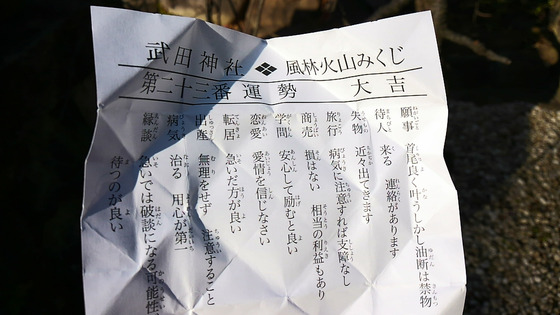 武田神社 風林火山みくじ
第二十三番運勢 大吉
願事 首尾良く叶うしかし油断は禁物
待人 来る 連絡があります
失物 近々出てきます
旅行 病気に注意すれば支障なし
商売 損はない 相当の利益もあり
学問 安心して励むと良い
恋愛 愛情を信じなさい
転居 急いだ方が良い
出産 無理をせず 注意すること
病気 治る 用心が第一
縁談 急いでは破談になる可能性
待つのが良い